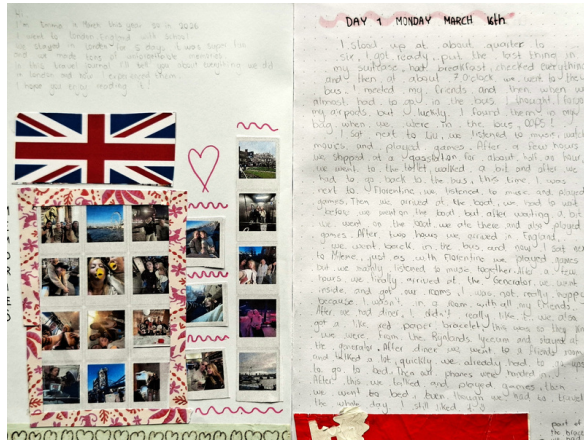 Hi,
I'm this year so in 2026
I went to London England with school
we stayed in London for 5 days, it was super fun
and we made tons of unforgettable memories.
I'll tell you about everything we did
in London and how I experienced them.
I hope you enjoy reading it!
MEMORIES
DAY 1 MONDAY MARCH 16th
I stood up at about quarter to
six, I got ready, put the last thing in
my suitcase, had breakfast, checked everything
and then at about 7 o'clock we went to the
bus. I meeted my friends, and then when we
almost had to go in the bus I thought I forgot
my airpods, but luckily, I found them in my
bag when we were in the bus, OOFS!
I sat next to Lili, we listened to music, watched
movies, and played games. After a few hours
we stopped at a gasstation for about half an hour
we went to the toilet, walked a bit and after we
had to go back to the bus, this time, I went
next to Florentine, we listened to music and played
games. Then we arrived at the boat, we had to wait
before we went on the boat but after waiting a bit
we went on the boat, we ate there and also played
games. After two hours we arrived in England,
we went back in the bus and now I sat next
to Merne, just as with Florentine we played games
but we mainly listened to music together. After a few
hours we finally arrived at the Generator, we went
inside and got our rooms. I was not really happy
because I wasn't in a room with all my friends.
After we had diner, I didn't really like it. we also
got a like red paper bracelet, this was so they
we were from the Rijnlands lyceum and stayed at
the generator. After diner we went to a friends room
and talked a lot, quickly we already had to
to go to bed. Then our phones were handed in
After this, we talked and played games, then
we went to bed, even though we had to travel
the whole day I still liked it :)
part of
the